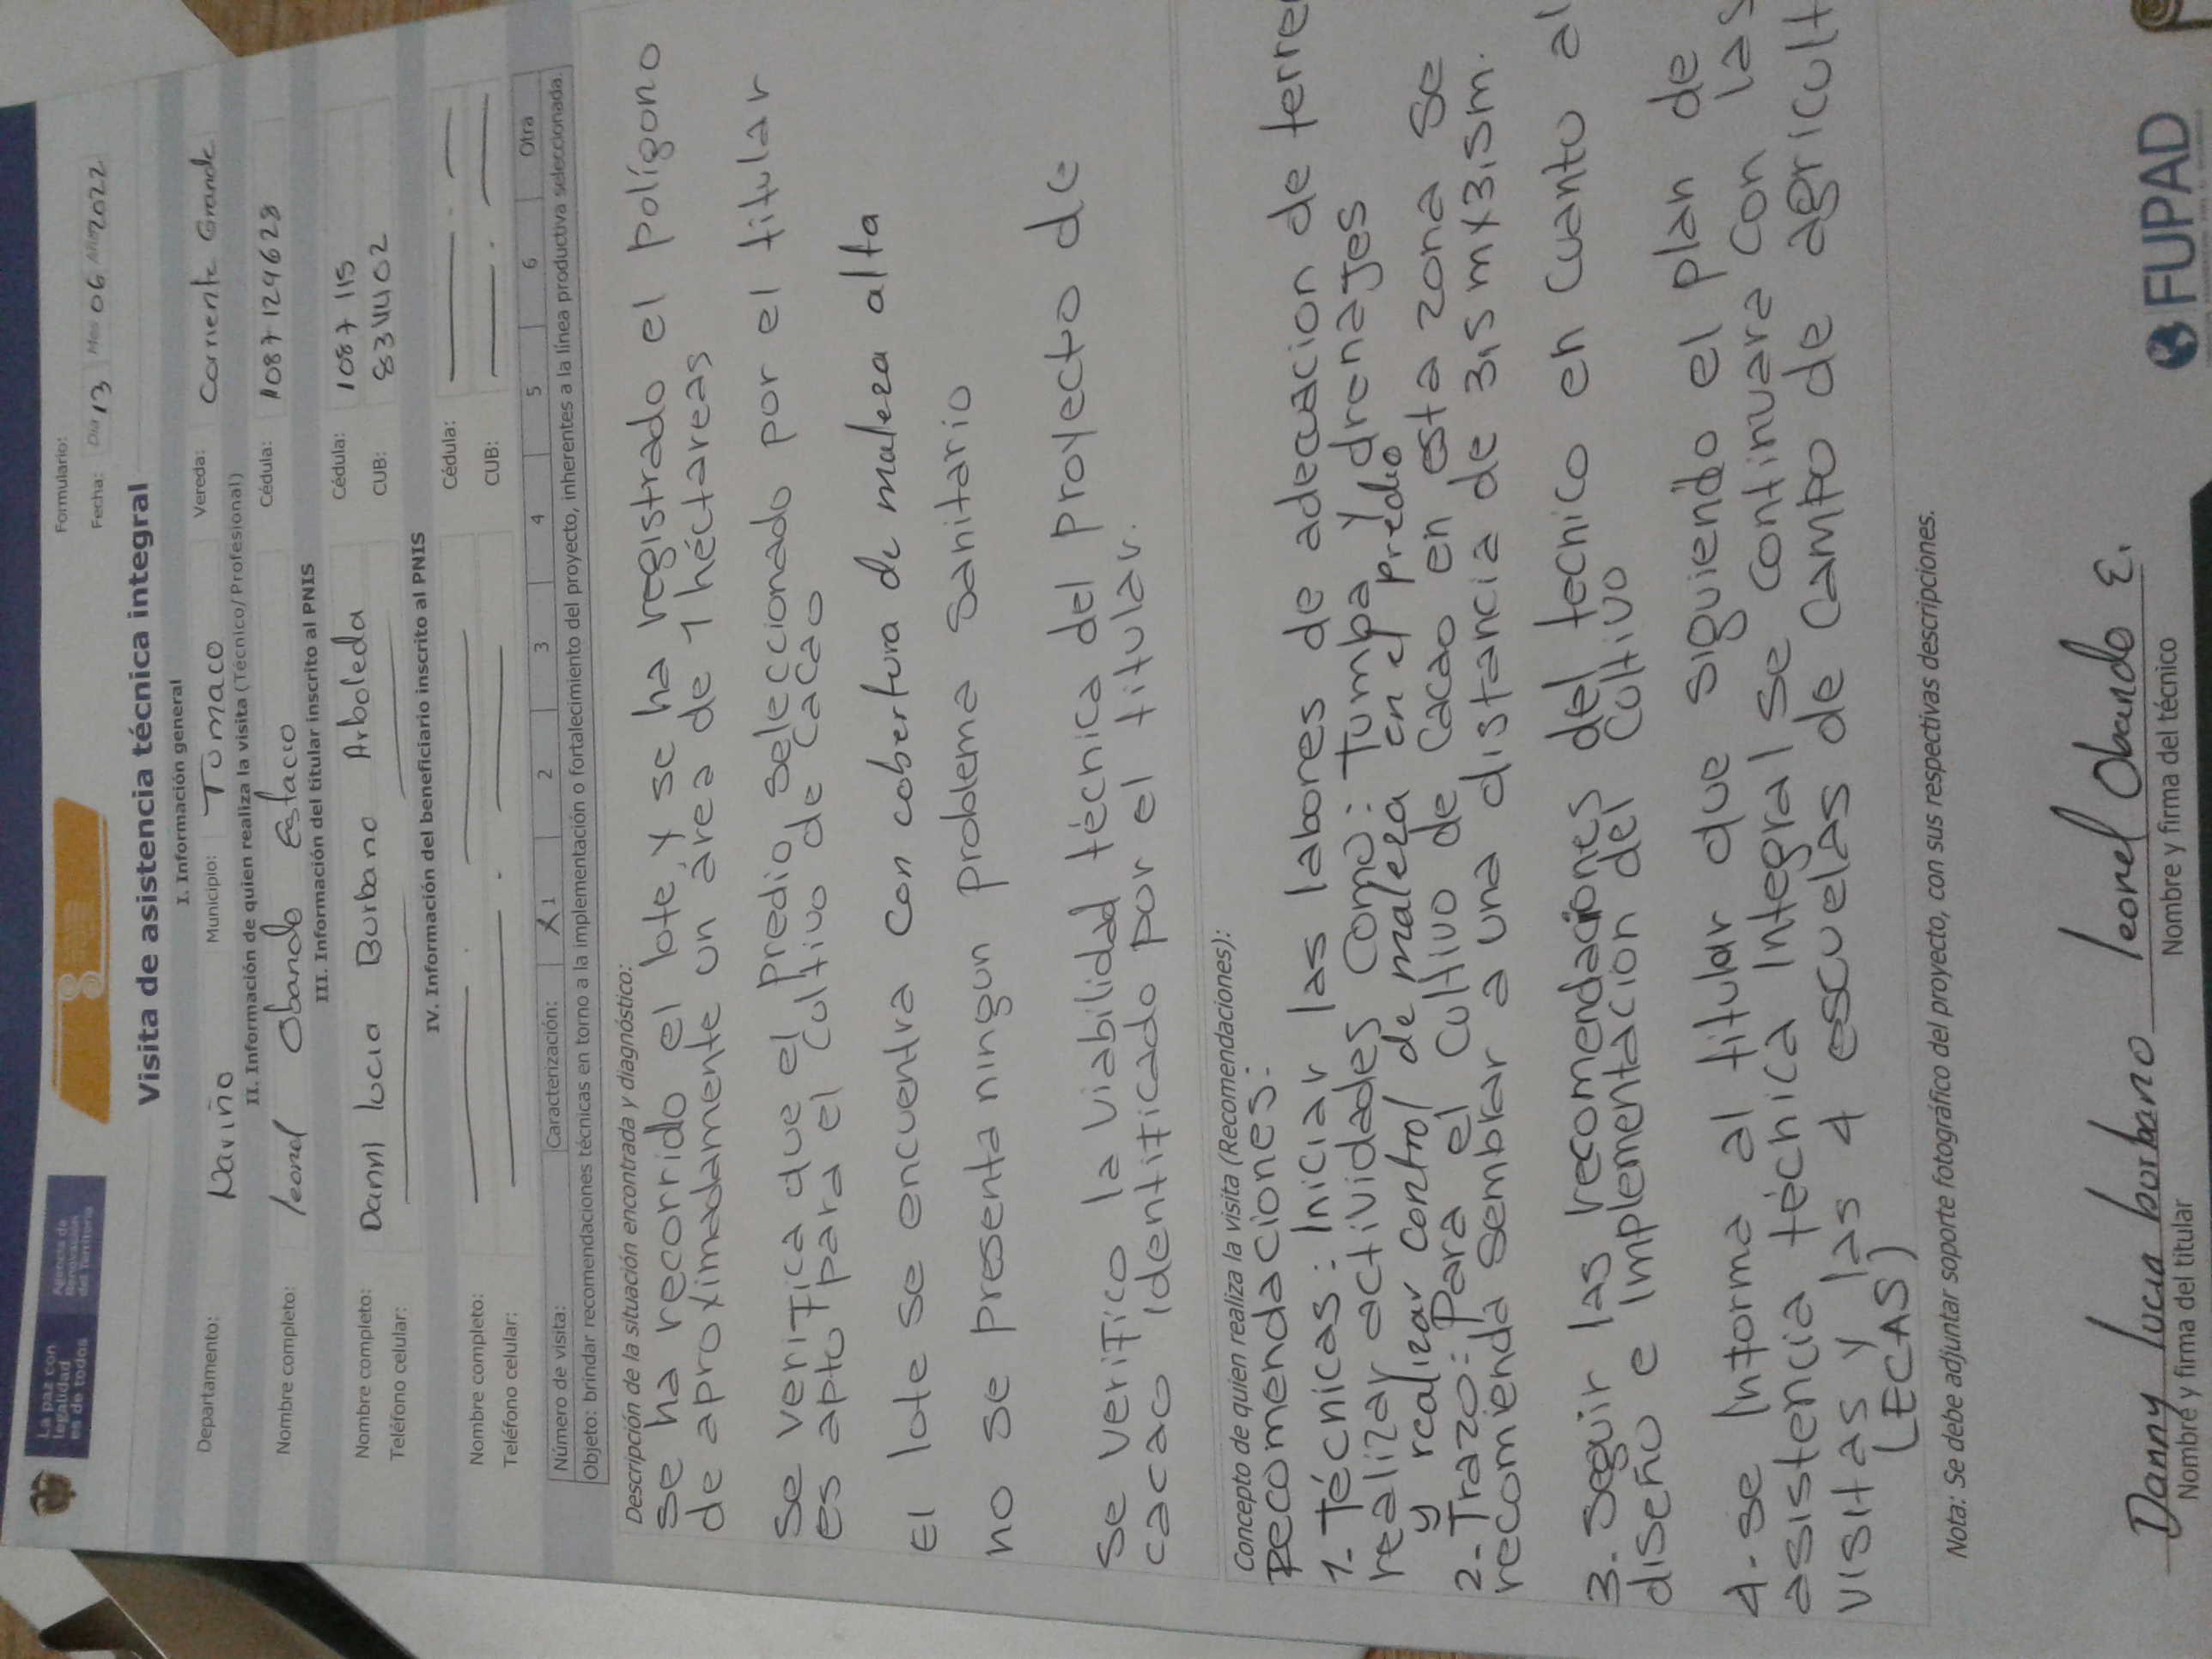 La paz con
legalidad
es de todos
Agencia de
Renovación
del Territorio
Formulario:
Fecha: Día 13 Mes 06 Año 2022
Visita de asistencia técnica integral
I. Información general
Departamento: Nariño Municipio: Tumaco Vereda: Corriente Grande
II. Información de quien realiza la visita (Técnico/Profesional)
Nombre completo: leonel Obando Estacio Cédula: 1087129628
III. Información del titular inscrito al PNIS
Nombre completo: Danni lucia Burbano Arboleda Cédula: 1087115
Teléfono celular: CUB: 8341402
IV. Información del beneficiario inscrito al PNIS
Nombre completo: Cédula:
Teléfono celular: CUB:
Número de visita: Caracterización: X 1 2 3 4 5 6 Otra
Objeto: brindar recomendaciones técnicas en torno a la implementación o fortalecimiento del proyecto, inherentes a la línea productiva seleccionada.
Descripción de la situación encontrada y diagnóstico:
se ha recorrido el lote y se ha registrado el polígono
de aproximadamente un área de 1 héctareas
Se verifica que el predio seleccionado por el titular
es apto para el cultivo de cacao
El lote se encuentra con cobertura de maleza alta
no se presenta ningun problema sanitario
Se verifico la viabilidad técnica del proyecto de
cacao identificado por el titular.
Concepto de quien realiza la visita (Recomendaciones):
Recomendaciones:
1- Técnicas: Iniciar las labores de adecuacion de terre
realizar actividades como: tumba y drenajes
y realizar control de maleza en el predio
2- Trazo: Para el cultivo de cacao en esta zona se
recomienda sembrar a una distancia de 3,5 m x 3,5m.
3- Seguir las recomendaciones del tecnico en cuanto al
diseño e implementacion del cultivo
4- se informa al titular que siguiendo el plan de
asistencia técnica Integral se continuara con las
visitas y las 4 escuelas de campo de agricult
(ECAS)
Nota: Se debe adjuntar soporte fotográfico del proyecto, con sus respectivas descripciones.
Danny lucia burbano leonel Obando E.
Nombre y firma del titular Nombre y firma del técnico
FUPAD